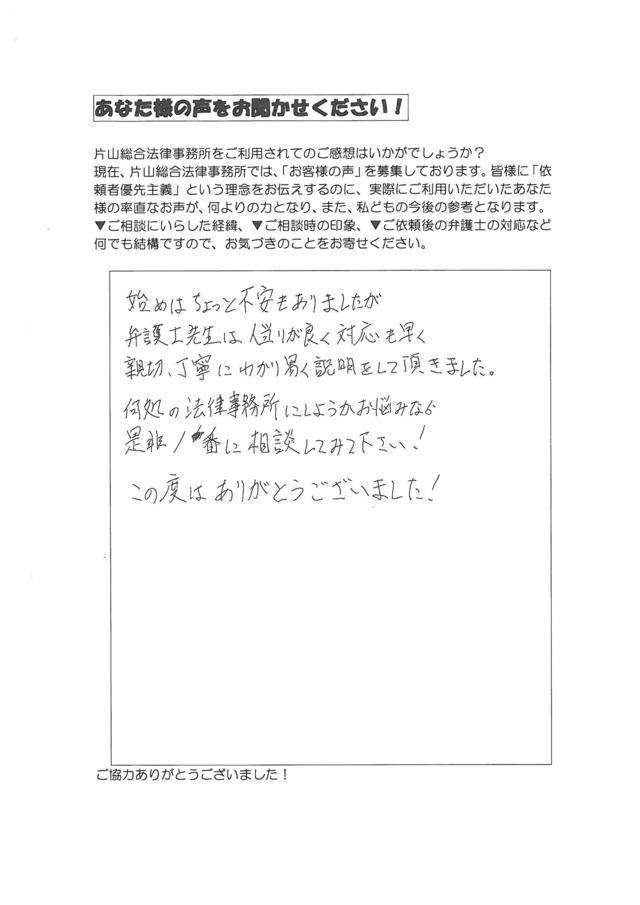 あなた様の声をお聞かせください！
片山総合法律事務所をご利用されてのご感想はいかがでしょうか？
現在、片山総合法律事務所では、「お客様の声」を募集しております。皆様に「依
頼者優先主義」という理念をお伝えするのに、実際にご利用いただいたあなた
様の率直なお声が、何よりの力となり、また、私どもの今後の参考となります。
▼ご相談にいらした経緯、▼ご相談時の印象、▼ご依頼後の弁護士の対応など
何でも結構ですので、お気づきのことをお寄せください。
始めはちょっと不安もありましたが
弁護士先生は人当りが良く対応も早く
親切、丁寧にわかり易く説明をして頂きました。
何処の法律事務所にしようかお悩みなら
是非1番に相談してみて下さい！
この度はありがとうございました！
ご協力ありがとうございました！